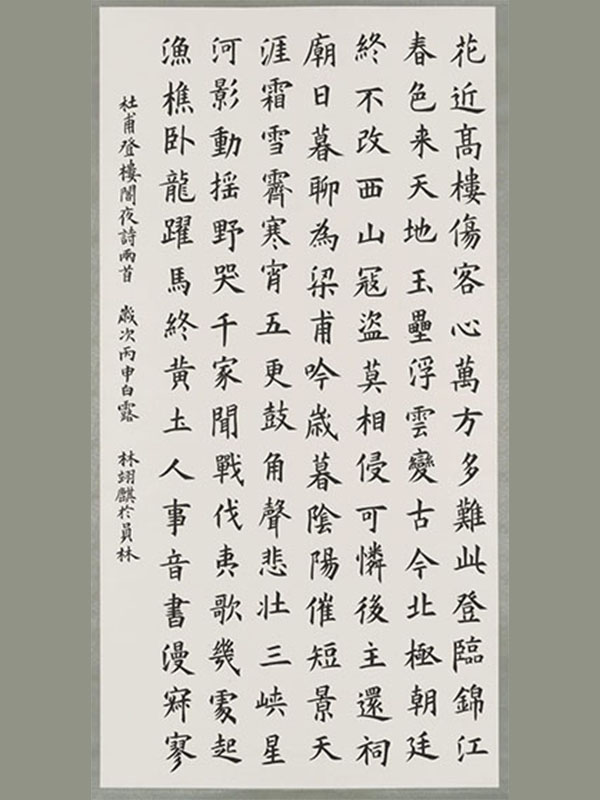 花近高樓傷客心萬方多難此登臨錦江
春色来天地玉壘浮雲變古今北極朝廷
終不改西山寇盜莫相侵可憐後主還祠
廟日暮聊為梁甫吟歲暮陰陽催短景天
涯霜雪霽寒宵五更鼓角聲悲壯三峽星
河影動搖野哭千家聞戰伐夷歌幾處起
漁樵臥龍躍馬終黃土人事音書漫寂寥
杜甫登樓閣夜詩兩首 歲次丙申白露 林翊麒於員林